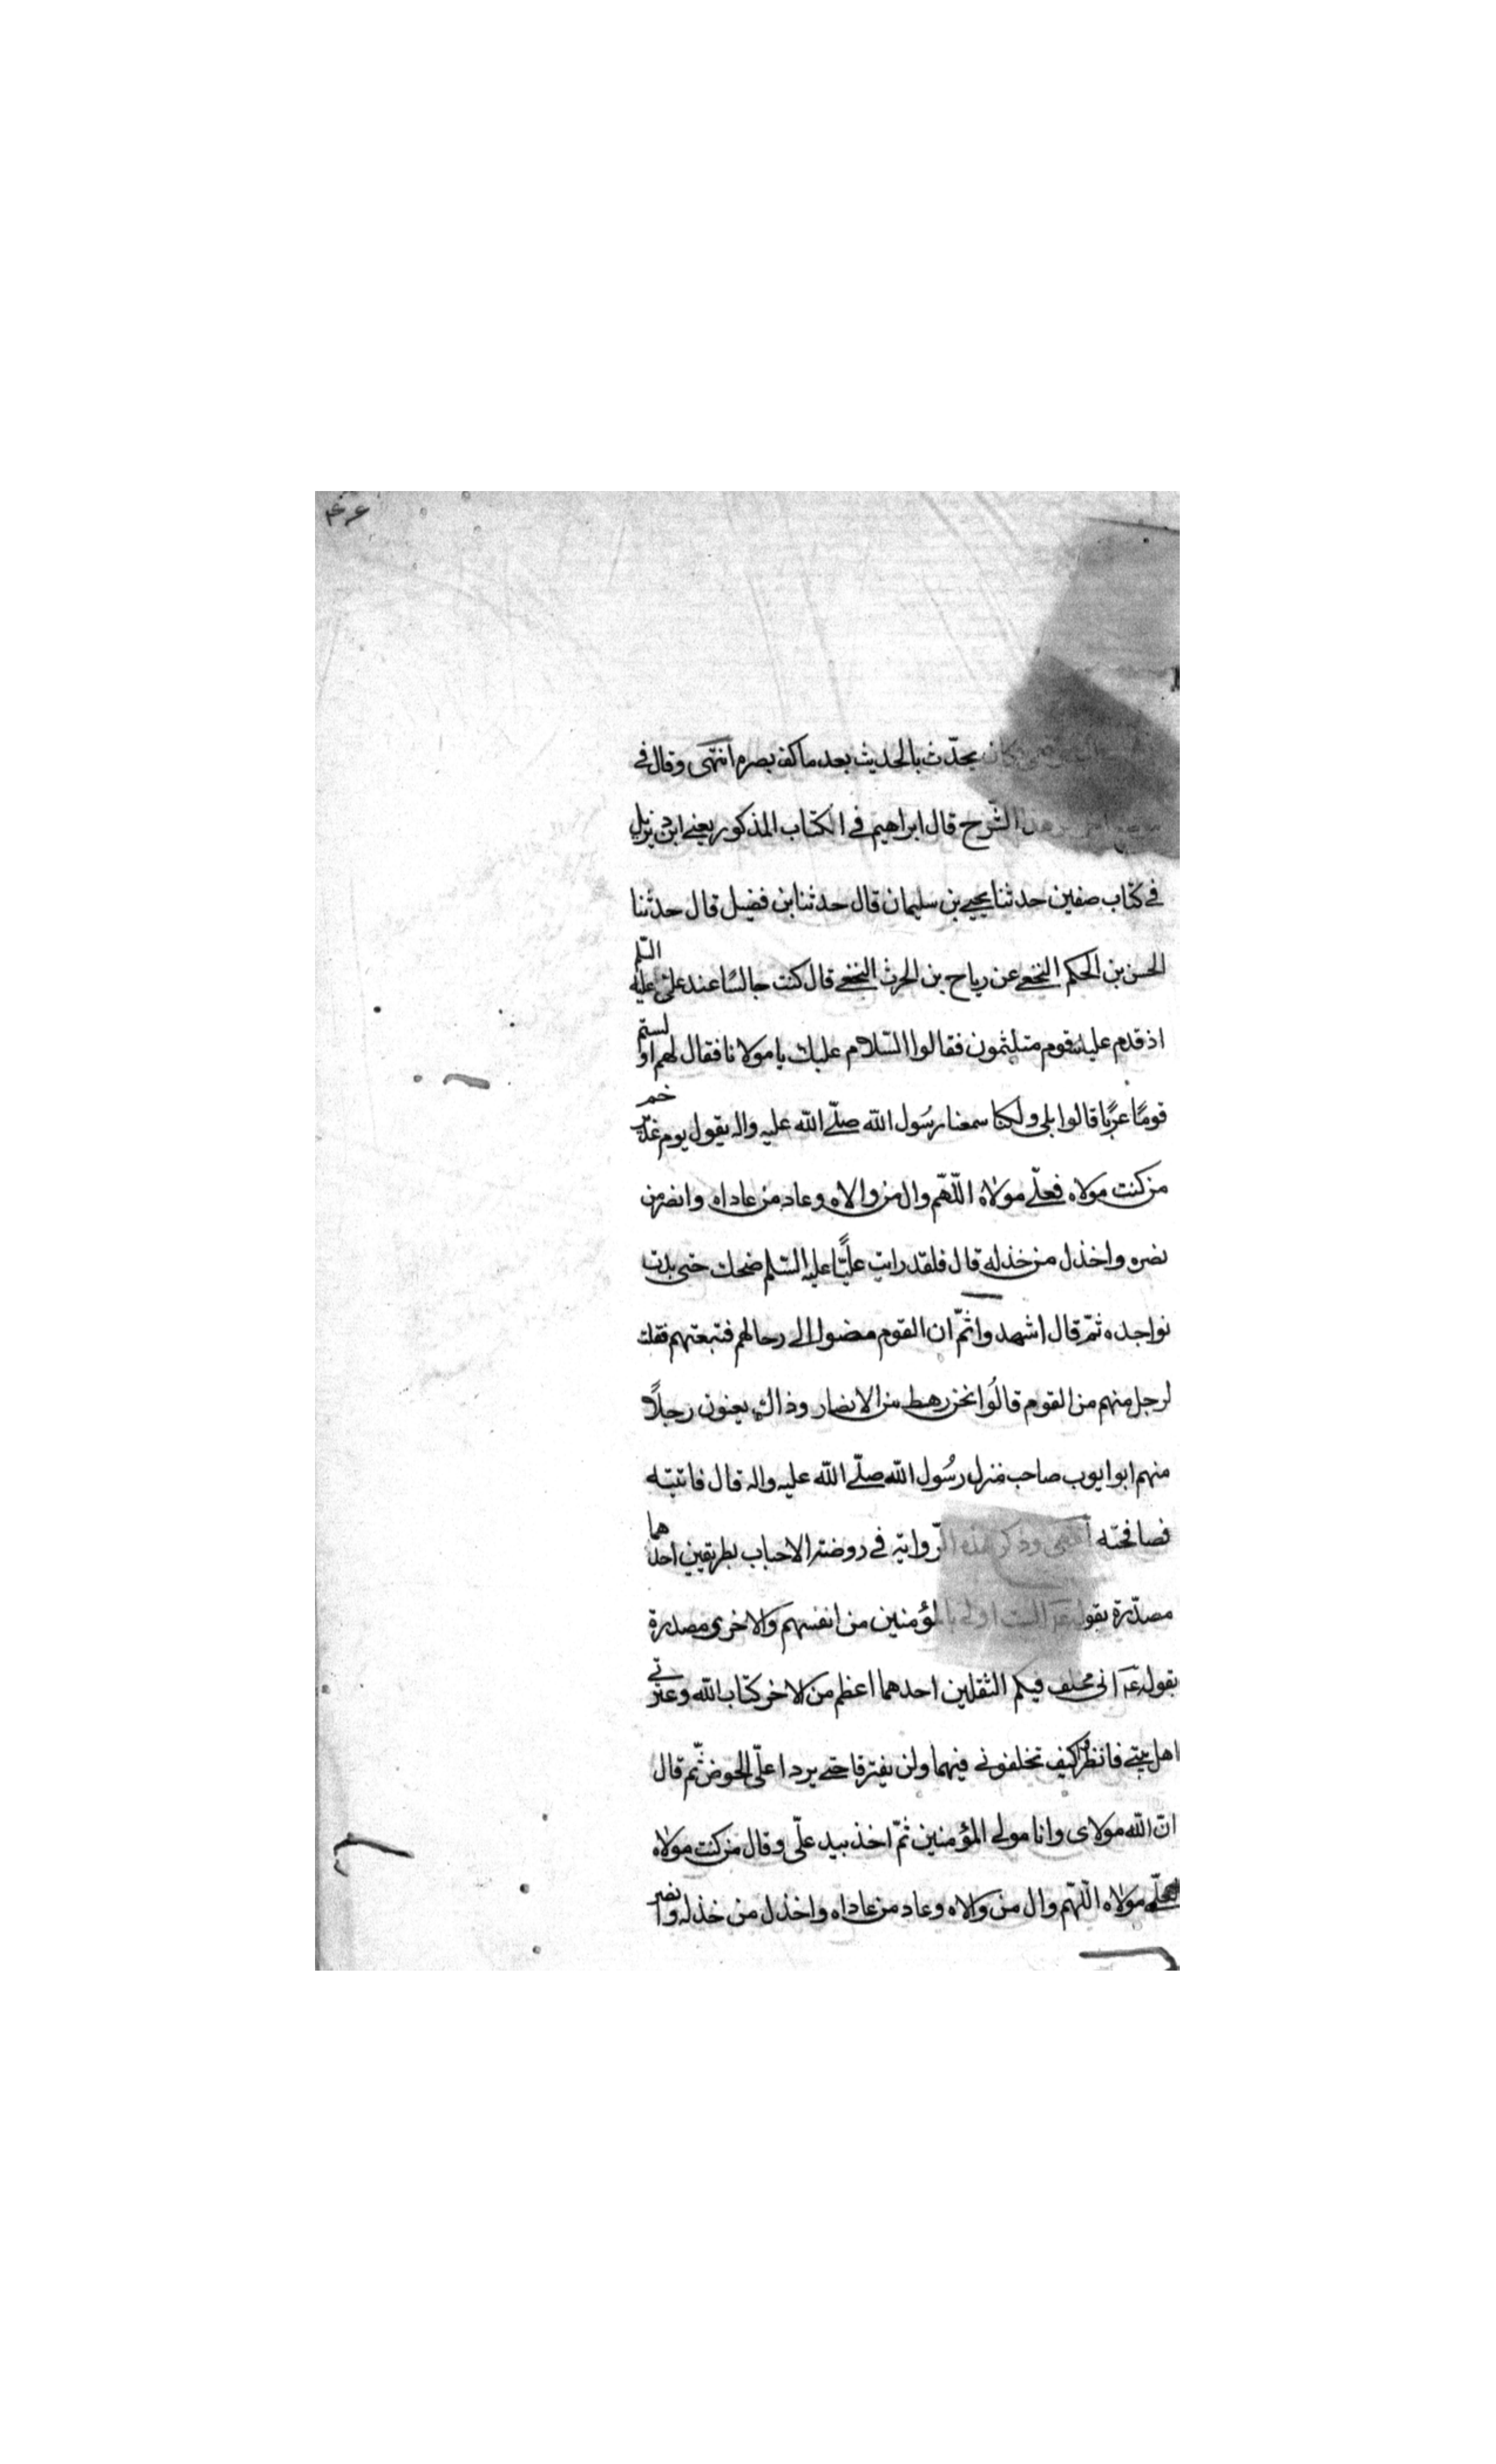 ۴۶
فكان يحدّث بالحديث بعد ما كف بصره انتهى وقال في
موضع اخر من هذا الشّرح قال ابراهيم في الكتاب المذكور يعني ابن ديزيل
في كتاب صفين حدثنا يحيى بن سليمان قال حدثنا بن فضيل قال حدثنا
الحسن بن الحكم النخعي عن رياح بن الحرث النخعي قال كنت جالسًا عند علىّ عليه السّلم
اذ قدم عليه قوم متلثمون فقالوا السّلام عليك يا مولانا فقال لهم او لستم
قومًا عربًا قالوا بلى ولكنا سمعنا رسُول الله صلّى الله عليه واله يقول يوم غدير خم
من كنت مولاه فعلىّ مولاه اللّهمّ وال من والاه وعاد من عاداه وانصر من
نصره واخذل من خذله قال فلقد رايت عليًّا عليه السّلم ضحك حتى بدت
نواجده ثمّ قال اشهدوا ثمّ ان القوم مضوا الى رحالهم فتبعتهم فقلت
لرجل منهم من القوم قالُوا نحن رهط من الانصار وذاك يعنون رجلاً
منهم ابو ايوب صاحب منزل رسُول الله صلّى الله عليه واله قال فاتيته
فصافحته انتهى وذكر هذه الرّواية في روضة الاحباب بطريقين احدهما
مصدّرة بقوله عم الست اولى بالمؤمنين من انفسهم والاخرى مصدرة
بقوله عم اني مخلف فيكم الثقلين احدهما اعظم من الاخر كتاب الله وعترتي
اهل بيتي فانظروا كيف تخلفوني فيهما ولن يفترقا حتى يردا علىّ الحوض ثمّ قال
انّ الله مولاى وانا مولى المؤمنين ثمّ اخذ بيد علىّ وقال من كنت مولاه
فعلىّ مولاه اللّهمّ وال من والاه وعاد من عاداه واخذل من خذله وانصر